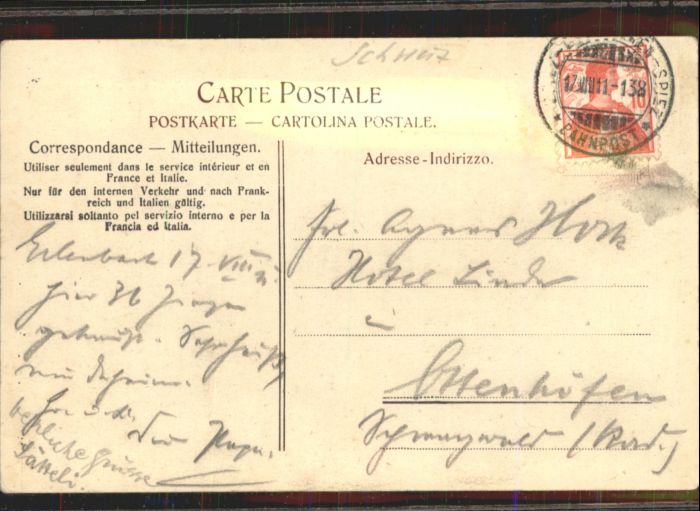 Schweiz
CARTE POSTALE
POSTKARTE — CARTOLINA POSTALE.
Correspondance — Mitteilungen.
Utiliser seulement dans le service intérieur et en
France et Italie.
Nur für den internen Verkehr und nach Frank-
reich und Italien gültig.
Utilizzarsi soltanto pel servizio interno e per la
Francia ed Italia.
Erlenbach 17. VIII. 11
hier 36 Ziegen
gekauft.
wie daheim.
Dein Papa.
herzliche Grüsse
Adresse-Indirizzo.
SPIEZ
17.VIII.11-138
BAHNPOST
10
Frl. Agnes
Hotel Linde
in
Ottenhöfen
Schwarzwald (Bad.)